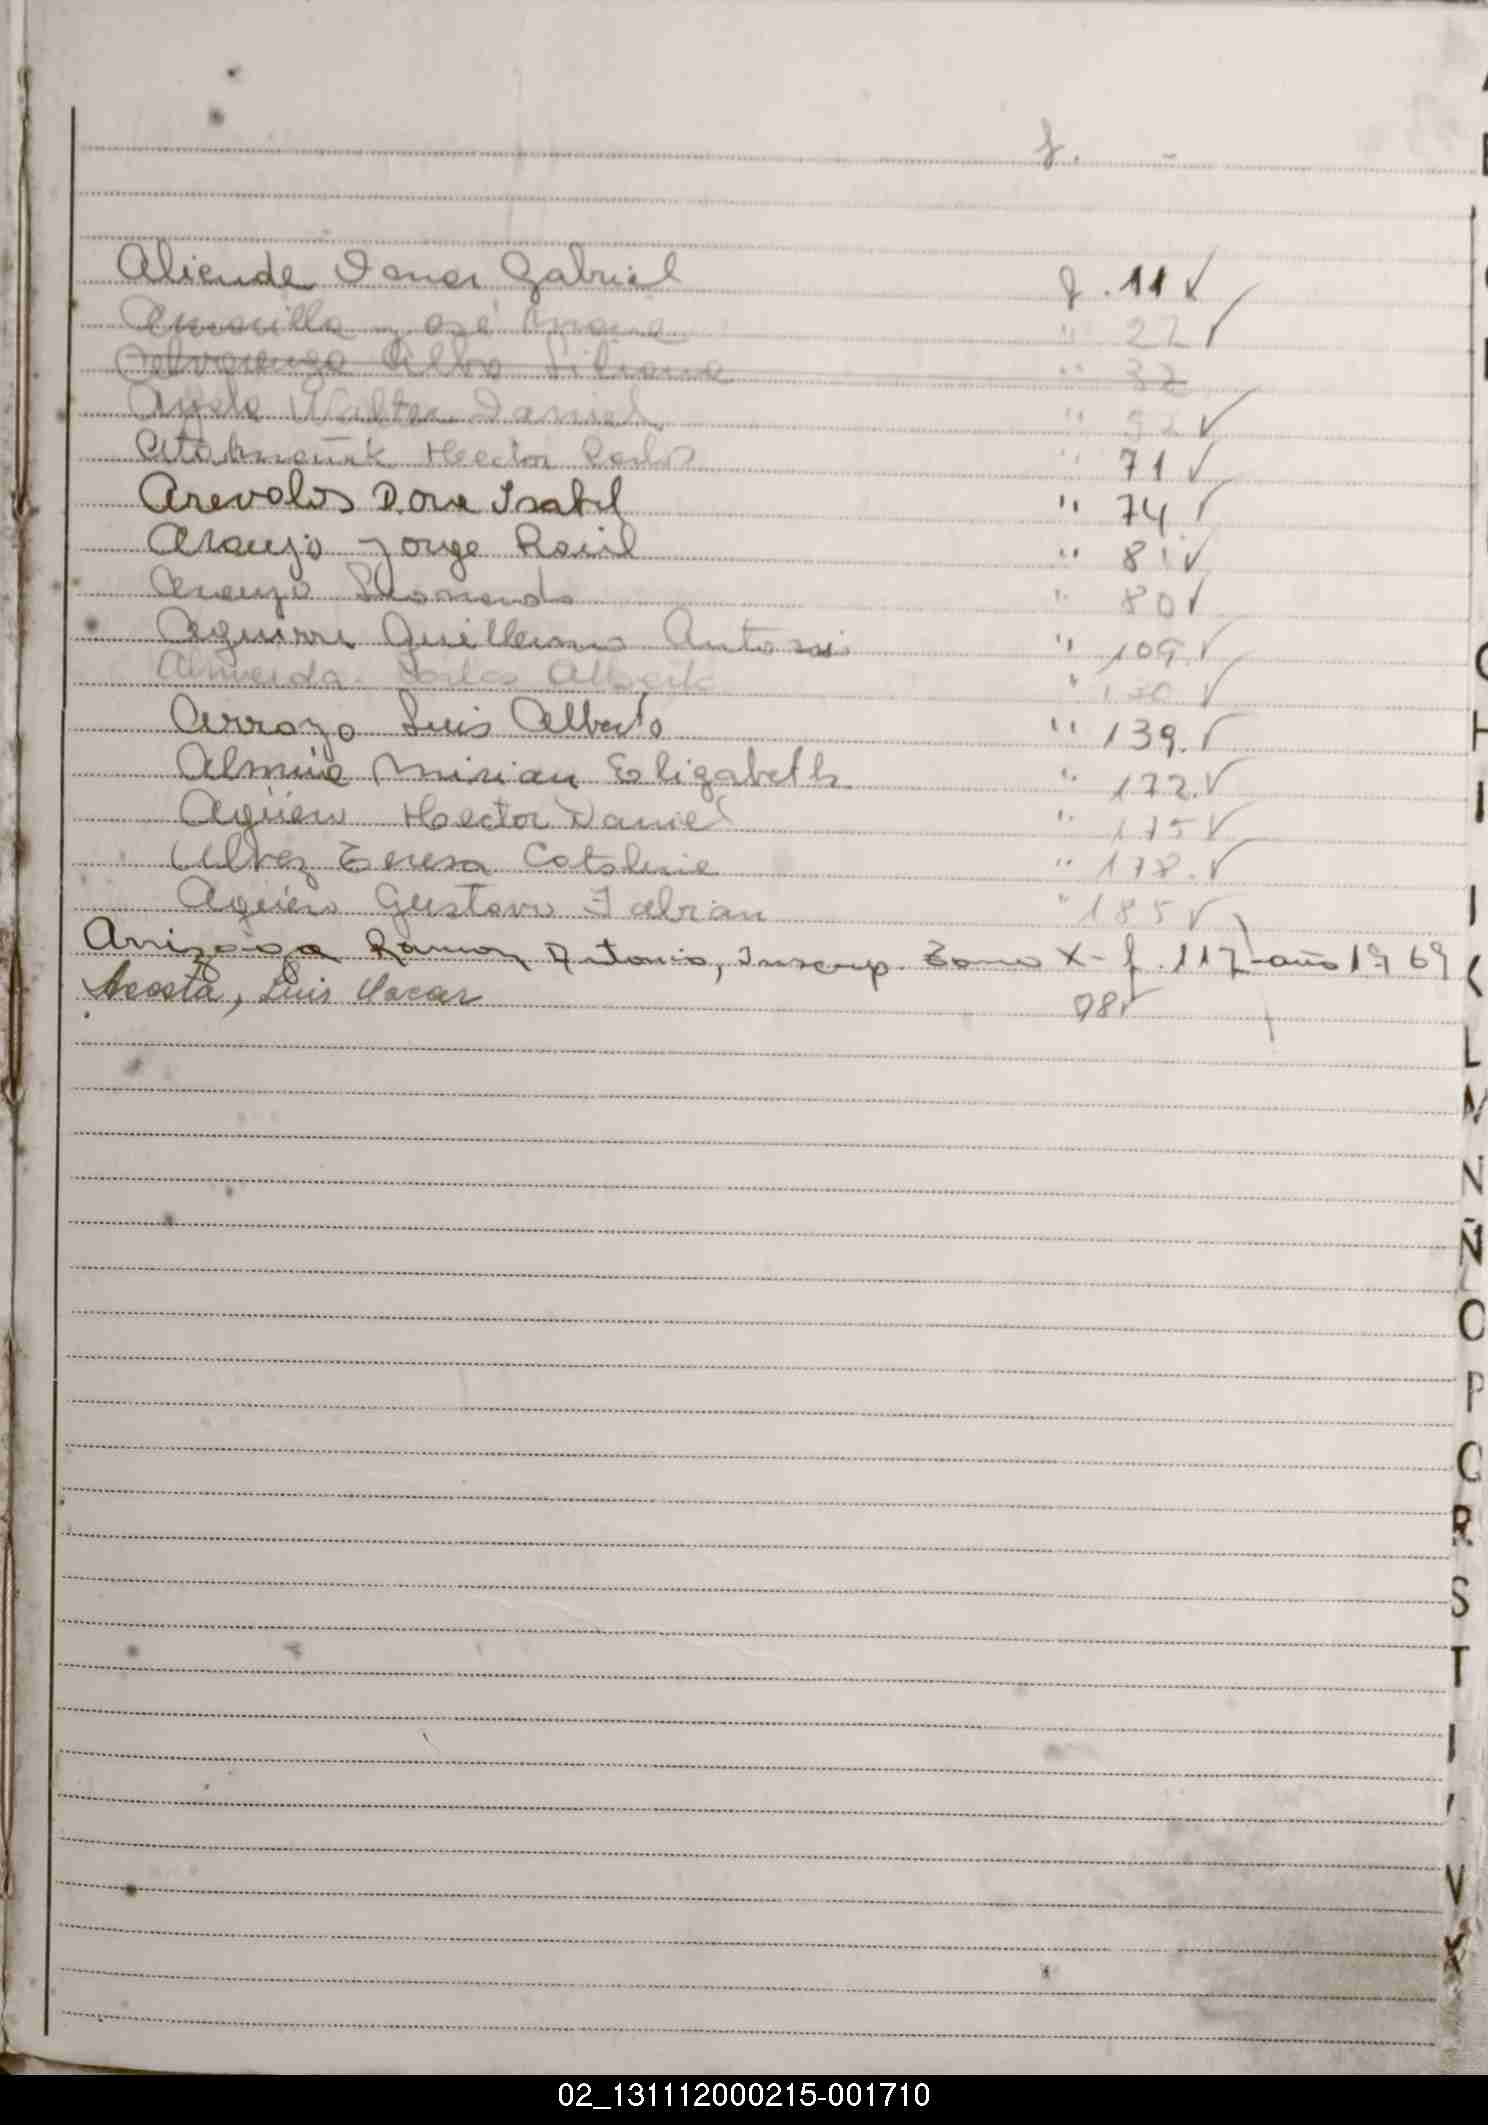 f. -
Aliende Daniel Gabriel f. 11 ✓
Amarilla José María " 22 ✓
Alvarenga Alba Liliana " 32
Ayala Walter Daniel " 52 ✓
Hector Carlos " 71 ✓
Arevalos Dora Isabel " 74 ✓
Araujo Jorge Raúl " 81 ✓
Araujo Leonardo " 80 ✓
Aguirre Guillermo Antonio " 109 ✓
Almeida Carlos Alberto " ✓
Arrozo Luis Alberto " 139. ✓
Almúa Mirian Elizabeth " 172. ✓
Agüero Hector Daniel " 175 ✓
Alvez Teresa Catalina " 178. ✓
Agüero Gustavo Fabian " 185 ✓
Arrizaga Ramon Antonio, Inscrip. Tomo X - f. 117 - año 1969
Acosta, Luis 98 ✓
A
B
G
H
I
K
L
M
N
Ñ
O
P
Q
R
S
T
V
X
02_131112000215-001710